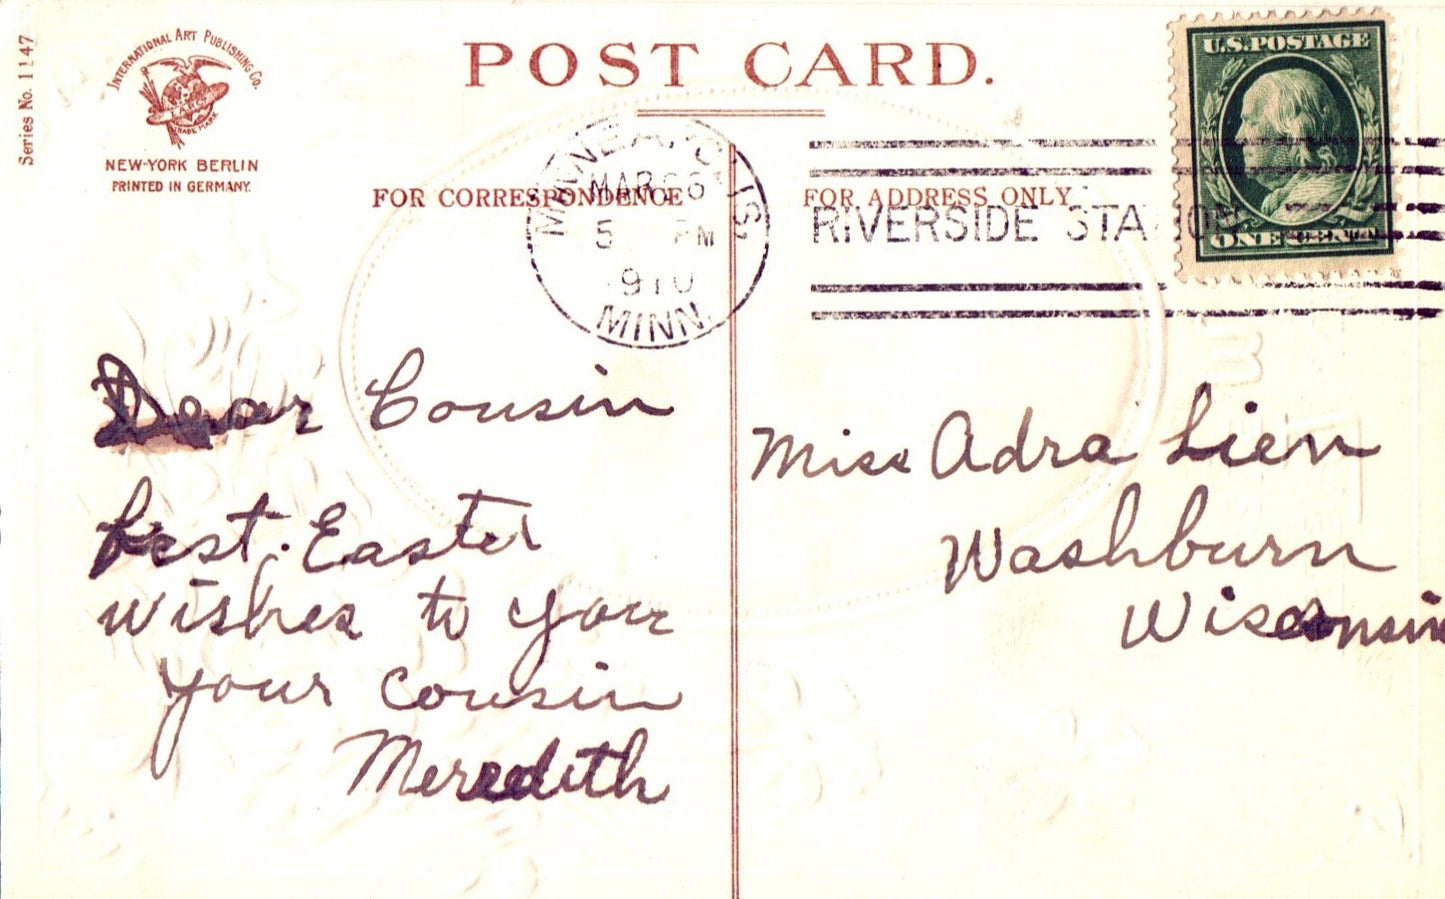 Series No. 1147
INTERNATIONAL ART PUBLISHING CO.
TRADE MARK
NEW-YORK BERLIN
PRINTED IN GERMANY.
POST CARD.
FOR CORRESPONDENCE
FOR ADDRESS ONLY
MINNEAPOLIS,
MAR 26
5 PM
1910
MINN.
RIVERSIDE STATION
U.S. POSTAGE
ONE CENT
Dear Cousin
best. Easter
wishes to you
your cousin
Meredith
Miss Adra Lien
Washburn
Wisconsin